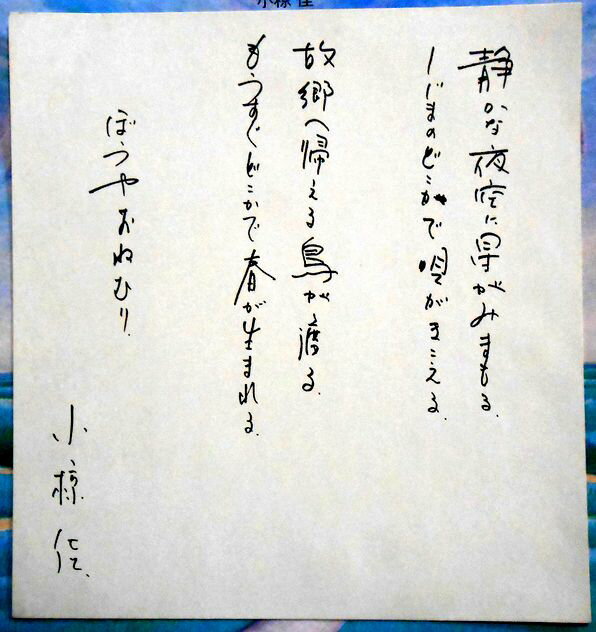 小椋 佳
静かな夜空に星がみまもる
しじまのどこかで唄がきこえる
故郷へ帰える鳥が渡る
もうすぐどこかで春が生まれる
ぼうやおねむり
小椋佳